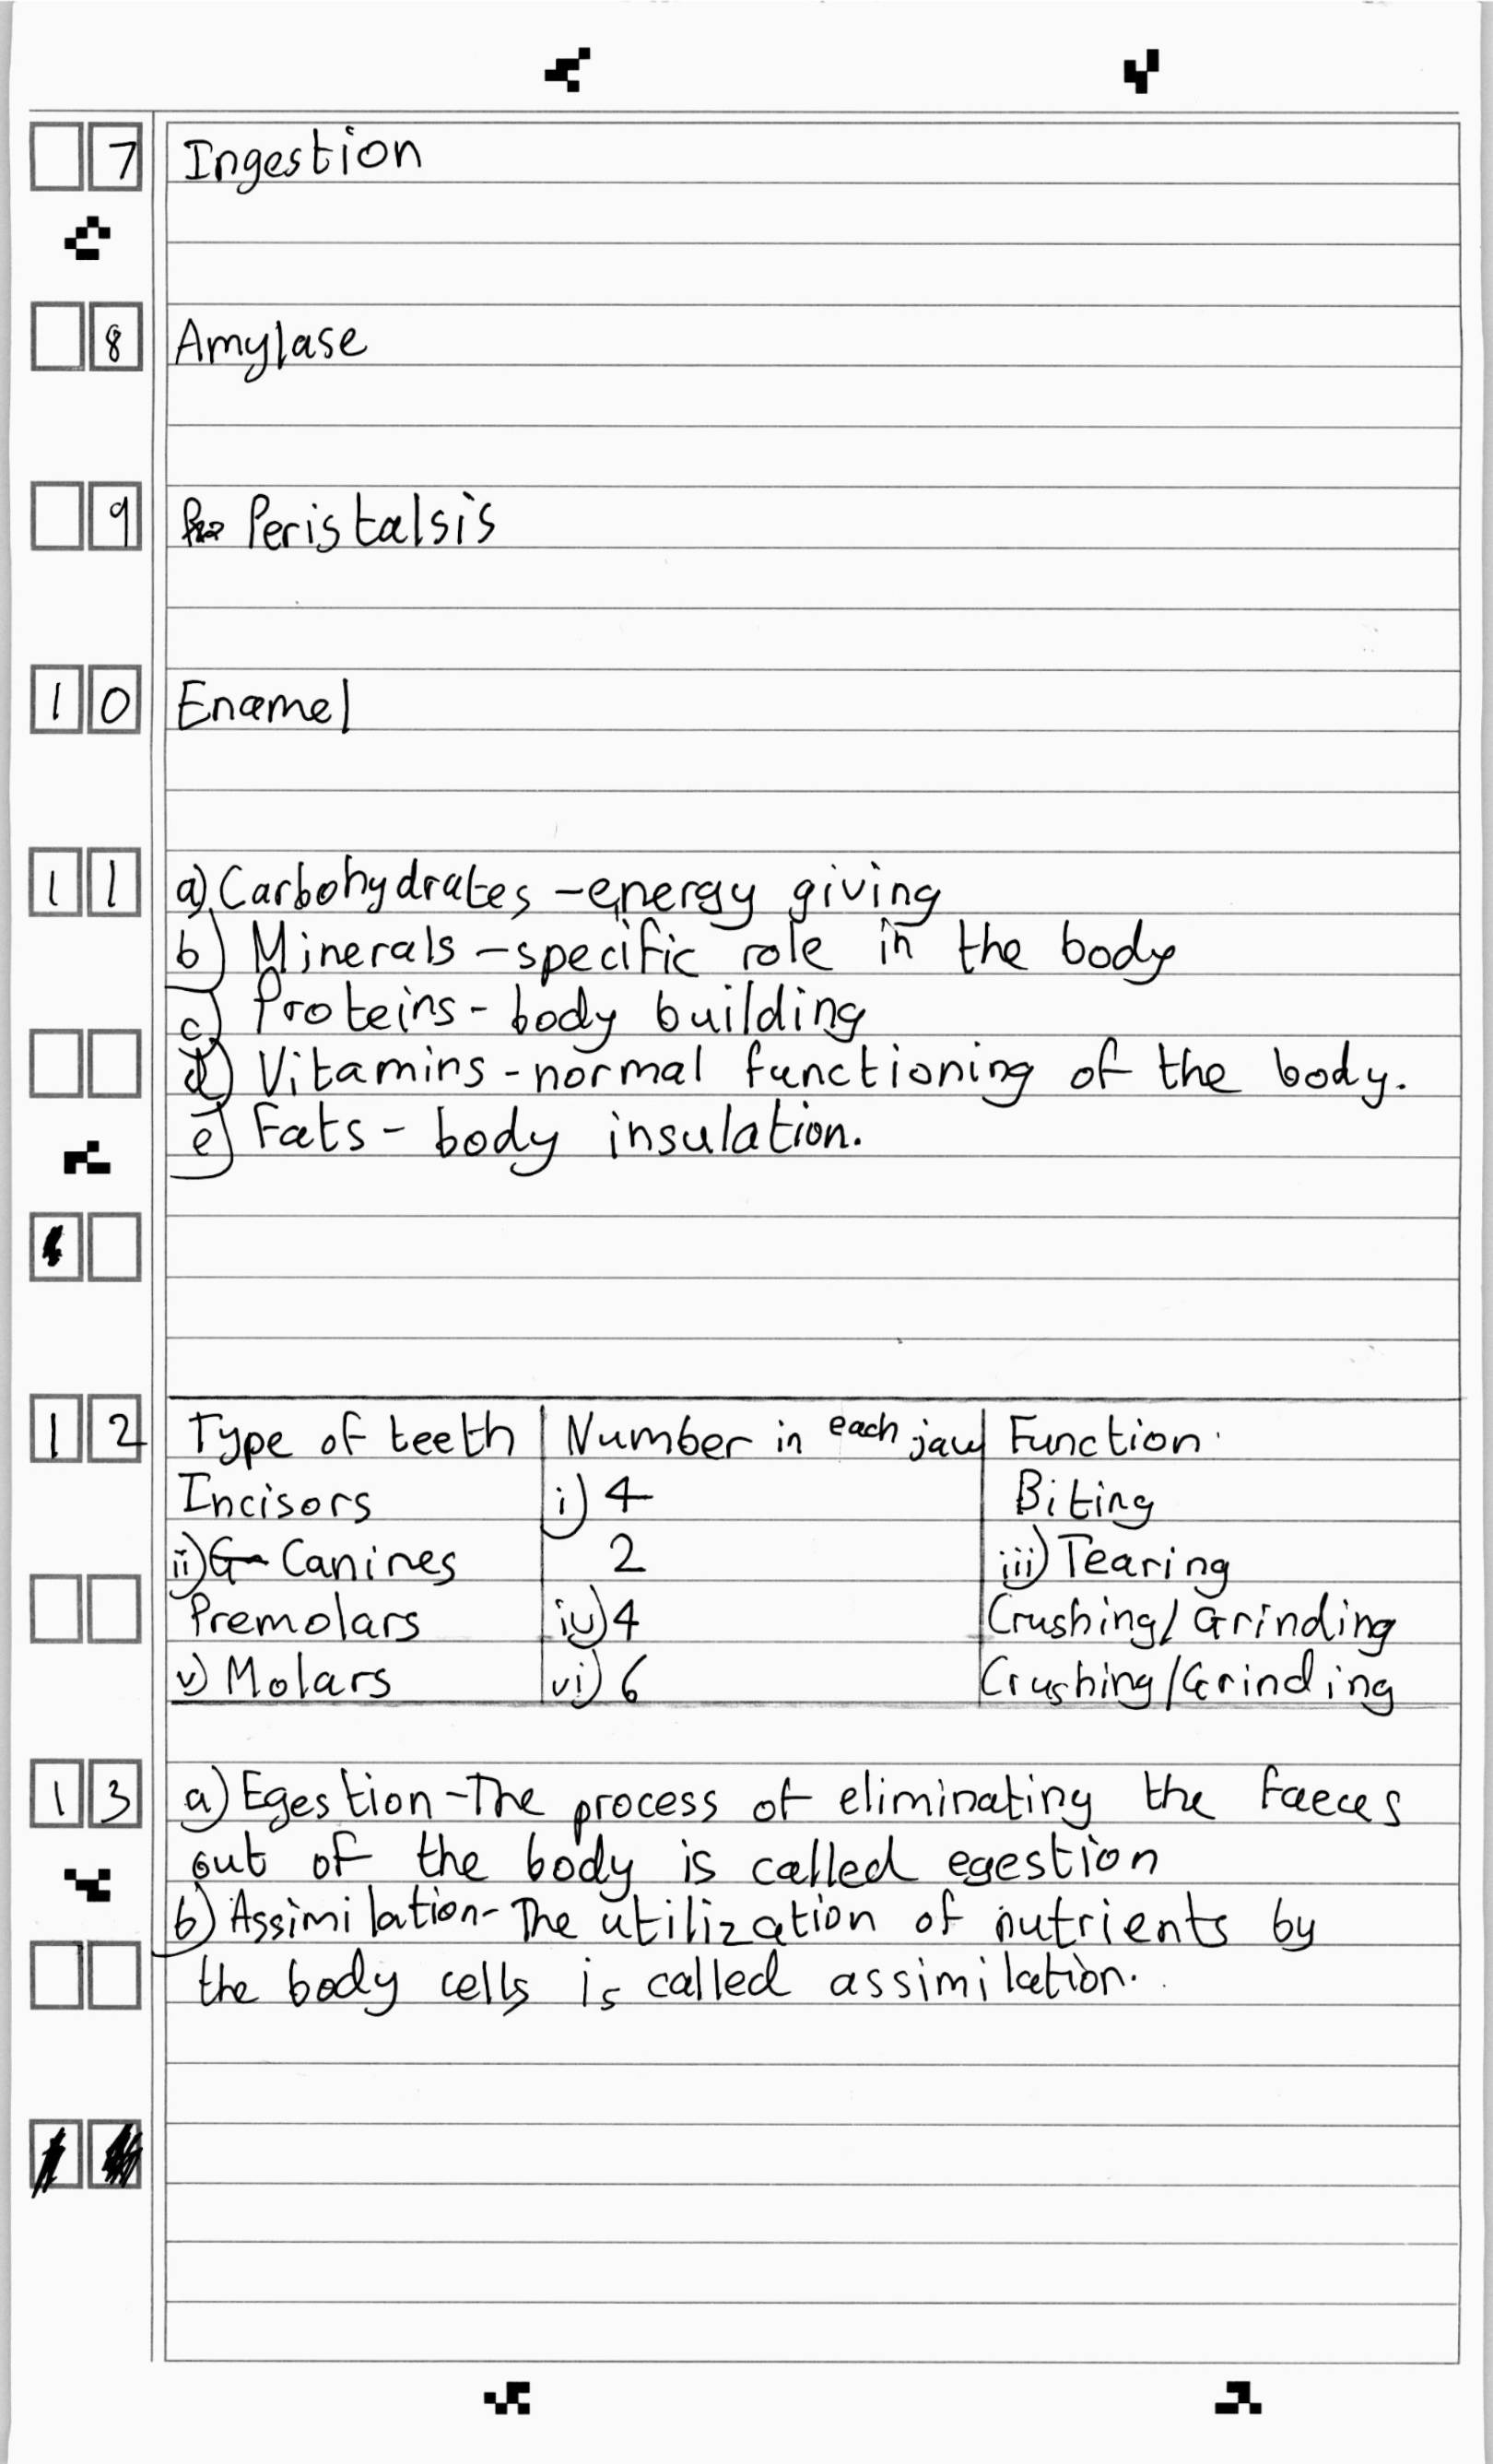 7 Ingestion
8 Amylase
9 Peristalsis
10 Enamel
11 a) Carbohydrates - energy giving
b) Minerals - specific role in the body
c) Proteins - body building
d) Vitamins - normal functioning of the body.
e) Fats - body insulation.
12 Type of teeth Number in each jaw Function
Incisors i) 4 Biting
ii) Canines 2 iii) Tearing
Premolars iv) 4 Crushing/Grinding
v) Molars vi) 6 Crushing/Grinding
13 a) Egestion - The process of eliminating the faeces
out of the body is called egestion
b) Assimilation - The utilization of nutrients by
the body cells is called assimilation.